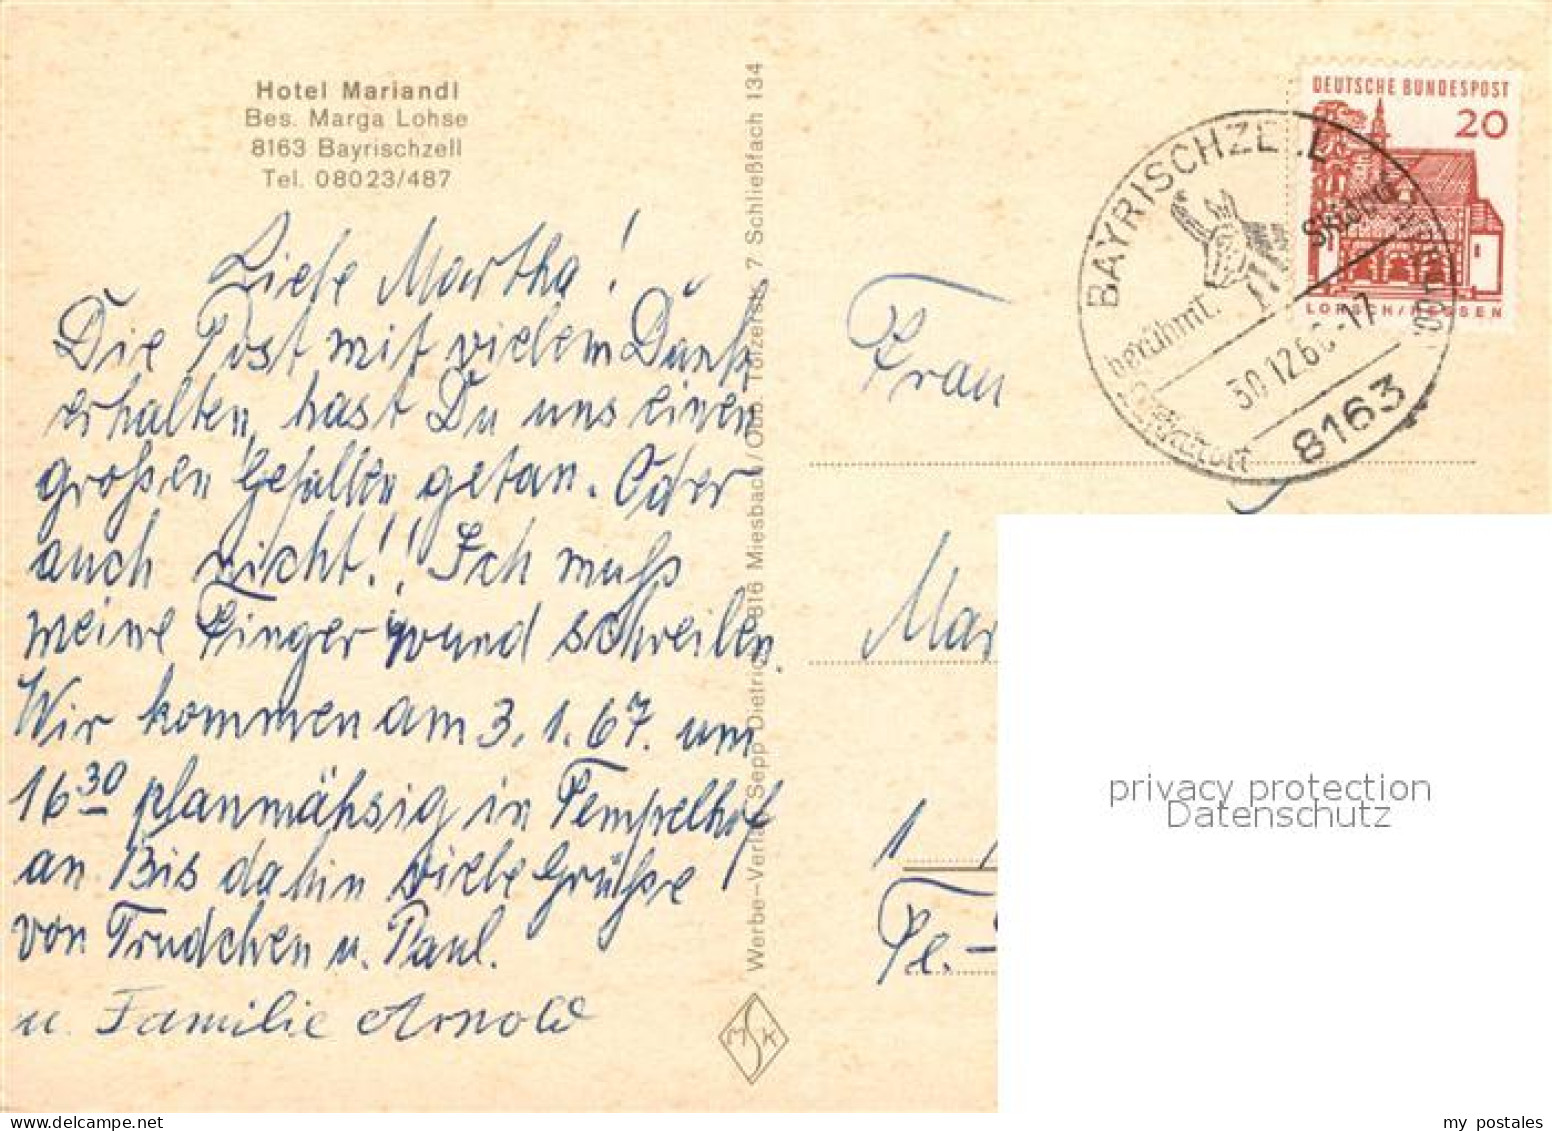 Hotel Mariandl
Bes. Marga Lohse
8163 Bayrischzell
Tel. 08023/487
Liebe Martha!
Die Post mit vielem Dank
erhalten, hast Du uns einen
großen Gefallen getan. Oder
auch nicht!! Ich muß
meine Finger wund schreiben.
Wir kommen am 3.1.67. um
16³⁰ planmäßig in Tempelhof
an. Bis dahin viele Grüße
von Trudchen u. Paul.
u. Familie Arnold
Werbe-Verlag Sepp Dietrich 816 Miesbach/Obb. Tölzerstr. 7 Schließfach 134
MSK
DEUTSCHE BUNDESPOST
20
LORSCH/HESSEN
BAYRISCHZELL
berühmt.
30.12.66-17
8163
Frau
Mar
1
Te.-
privacy protection
Datenschutz
my postales